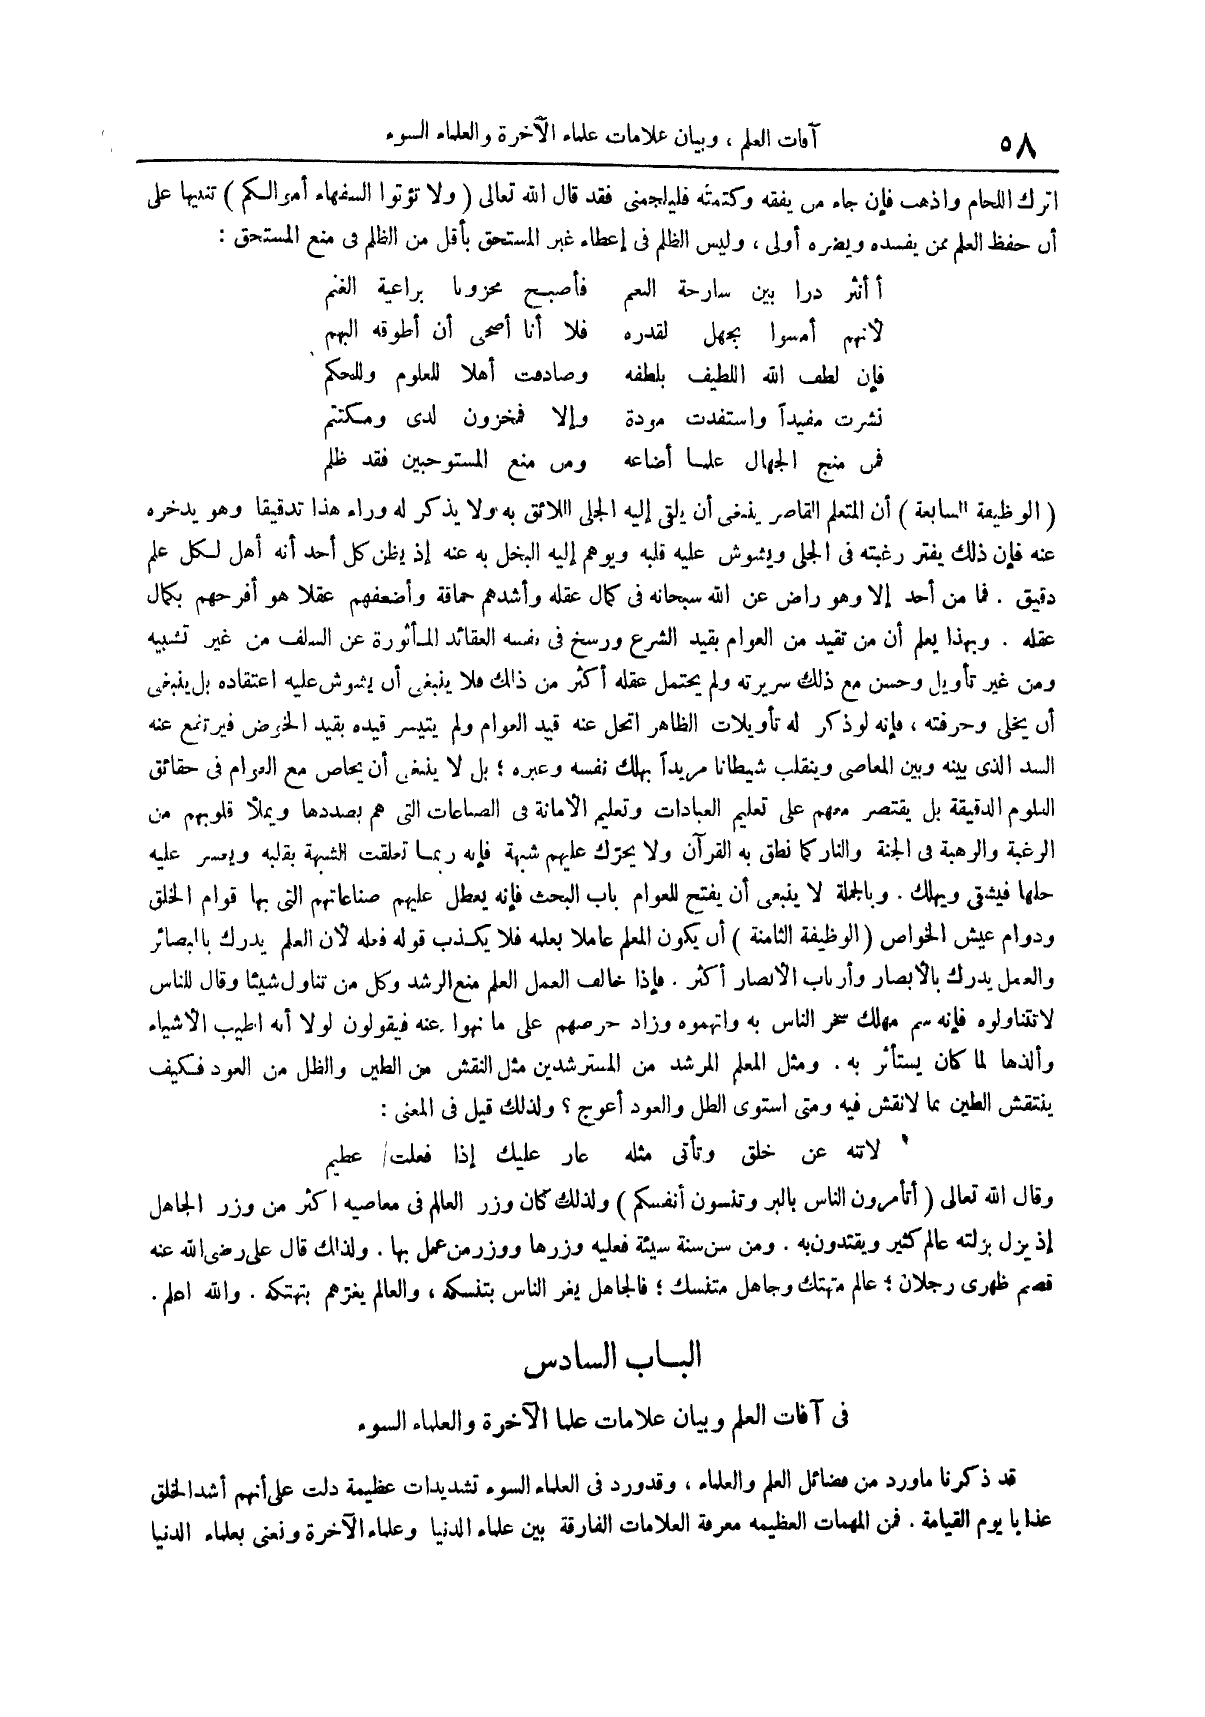 ٥٨
آفات العلم ، وبيان علامات علماء الآخرة والعلماء السوء
اترك اللجام واذهب فإن جاء من يفقه وكتمته فليلجمنى فقد قال الله تعالى ( ولا تؤتوا السفهاء أموالكم ) تنبيها على
أن حفظ العلم ممن يفسده ويضره أولى ، وليس الظلم فى إعطاء غير المستحق بأقل من الظلم فى منع المستحق :
أأنثر درا بين سارحة النعم فأصبح مخزونا براعية الغنم
لأنهم أمسوا بجهل لقدره فلا أنا أضحى أن أطوقه البهم
فإن لطف الله اللطيف بلطفه وصادفت أهلا للعلوم وللحكم
نشرت مفيداً واستفدت مودة وإلا فمخزون لدى ومكتتم
فمن منح الجهال علما أضاعه ومن منع المستوجبين فقد ظلم
( الوظيفة السابعة ) أن المتعلم القاصر ينبغى أن يلقى إليه الجلى اللائق به ولا يذكر له وراء هذا تدقيقا وهو يدخره
عنه فإن ذلك يفتر رغبته فى الجلى ويشوش عليه قلبه ويوهم إليه البخل به عنه إذ يظن كل أحد أنه أهل لكل علم
دقيق . فما من أحد إلا وهو راض عن الله سبحانه فى كمال عقله وأشدهم حماقة وأضعفهم عقلا هو أفرحهم بكمال
عقله . وبهذا يعلم أن من تقيد من العوام بقيد الشرع ورسخ فى نفسه العقائد المأثورة عن السلف من غير تشبيه
ومن غير تأويل وحسن مع ذلك سريرته ولم يحتمل عقله أكثر من ذلك فلا ينبغى أن يشوش عليه اعتقاده بل ينبغى
أن يخلى وحرفته ، فإنه لو ذكر له تأويلات الظاهر انحل عنه قيد العوام ولم يتيسر قيده بقيد الخوض فيرتفع عنه
السد الذى بينه وبين المعاصى وينقلب شيطانا مريداً يهلك نفسه وغيره ؛ بل لا ينبغى أن يخاض مع العوام فى حقائق
العلوم الدقيقة بل يقتصر معهم على تعليم العبادات وتعليم الأمانة فى الصناعات التى هم بصددها ويملأ قلوبهم من
الرغبة والرهبة فى الجنة والنار كما نطق به القرآن ولا يحرّك عليهم شبهة فإنه ربما تعلقت الشبهة بقلبه ويعسر عليه
حلها فيشقى ويهلك . وبالجملة لا ينبغى أن يفتح للعوام باب البحث فإنه يعطل عليهم صناعاتهم التى بها قوام الخلق
ودوام عيش الخواص ( الوظيفة الثامنة ) أن يكون المعلم عاملا بعلمه فلا يكذب قوله فعله لأن العلم يدرك بالبصائر
والعمل يدرك بالأبصار وأرباب الأبصار أكثر . فإذا خالف العمل العلم منع الرشد وكل من تناول شيئا وقال للناس
لاتتناولوه فإنه سم مهلك سخر الناس به واتهموه وزاد حرصهم على ما نهوا عنه فيقولون لولا أنه أطيب الأشياء
وألذها لما كان يستأثر به . ومثل المعلم المرشد من المسترشدين مثل النقش من الطين والظل من العود فكيف
ينتقش الطين بما لانقش فيه ومتى استوى الظل والعود أعوج ؟ ولذلك قيل فى المعنى :
لاتنه عن خلق وتأتى مثله عار عليك إذا فعلت عظيم
وقال الله تعالى ( أتأمرون الناس بالبر وتنسون أنفسكم ) ولذلك كان وزر العالم فى معاصيه أكثر من وزر الجاهل
إذ يزل بزلته عالم كثير ويقتدون به . ومن سن سنة سيئة فعليه وزرها ووزر من عمل بها . ولذلك قال على رضى الله عنه
قصم ظهرى رجلان ؛ عالم متهتك وجاهل متنسك ؛ فالجاهل يغر الناس بتنسكه ، والعالم يغرّهم بتهتكه . والله أعلم .
الباب السادس
فى آفات العلم وبيان علامات علما الآخرة والعلماء السوء
قد ذكرنا ماورد من فضائل العلم والعلماء ، وقدورد فى العلماء السوء تشديدات عظيمة دلت على أنهم أشد الخلق
عذابا يوم القيامة . فمن المهمات العظيمه معرفة العلامات الفارقة بين علماء الدنيا وعلماء الآخرة ونعنى بعلماء الدنيا